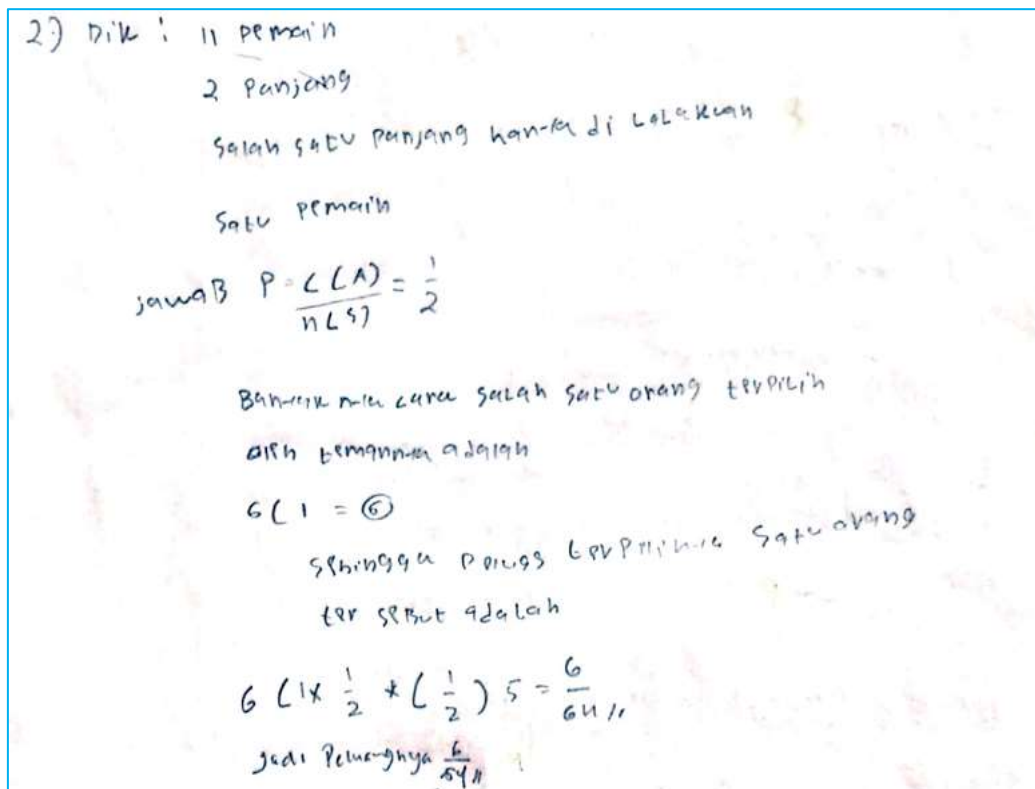 2) Dik : 11 pemain
2 Panjang
salah satu panjang hanya di lalakuan
satu pemain
jawaB P = C(A)/n(S) = 1/2
Banyaknya cara salah satu orang terpilih
oleh temannya adalah
6C1 = 6
sehingga terpilihnya satu orang
ter seBut adalah
6C1x 1/2 * (1/2) 5 = 6/64 //
Jadi Peluangnya 6/54 //